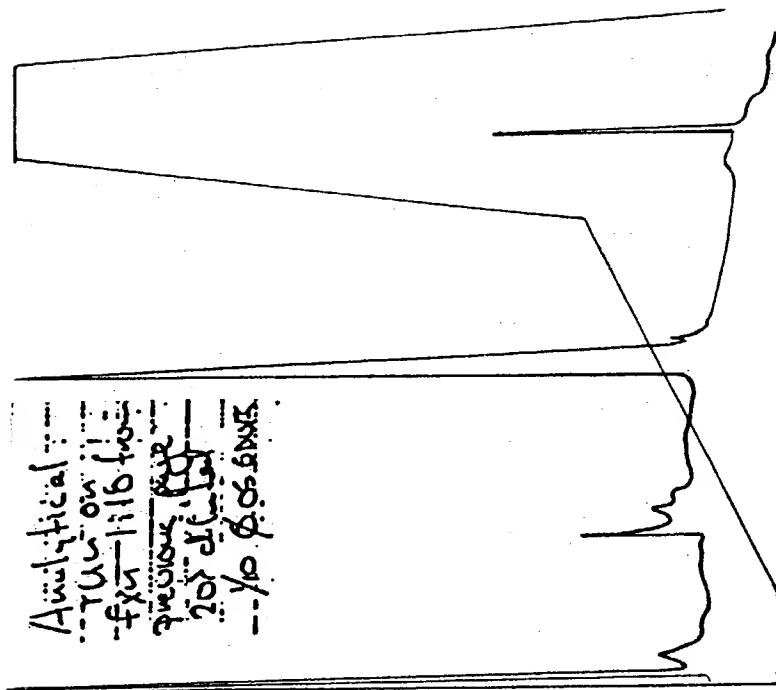 Analytical
run on
fxn 1116 from
previous page
20λ diluted
1/10